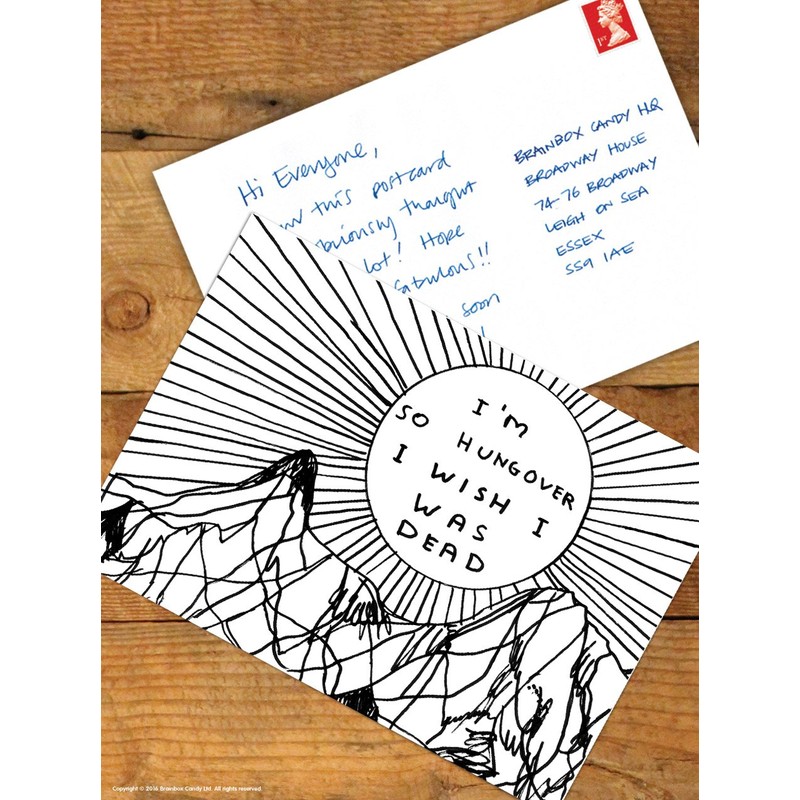 1ST
Hi Everyone,
this postcard
thought
lot! Hope
soon
BRAINBOX CANDY HQ
BROADWAY HOUSE
74-76 BROADWAY
LEIGH ON SEA
ESSEX
SS9 1AE
I'M
SO HUNGOVER
I WISH I
WAS
DEAD
Copyright © 2016 Brainbox Candy Ltd. All rights reserved.